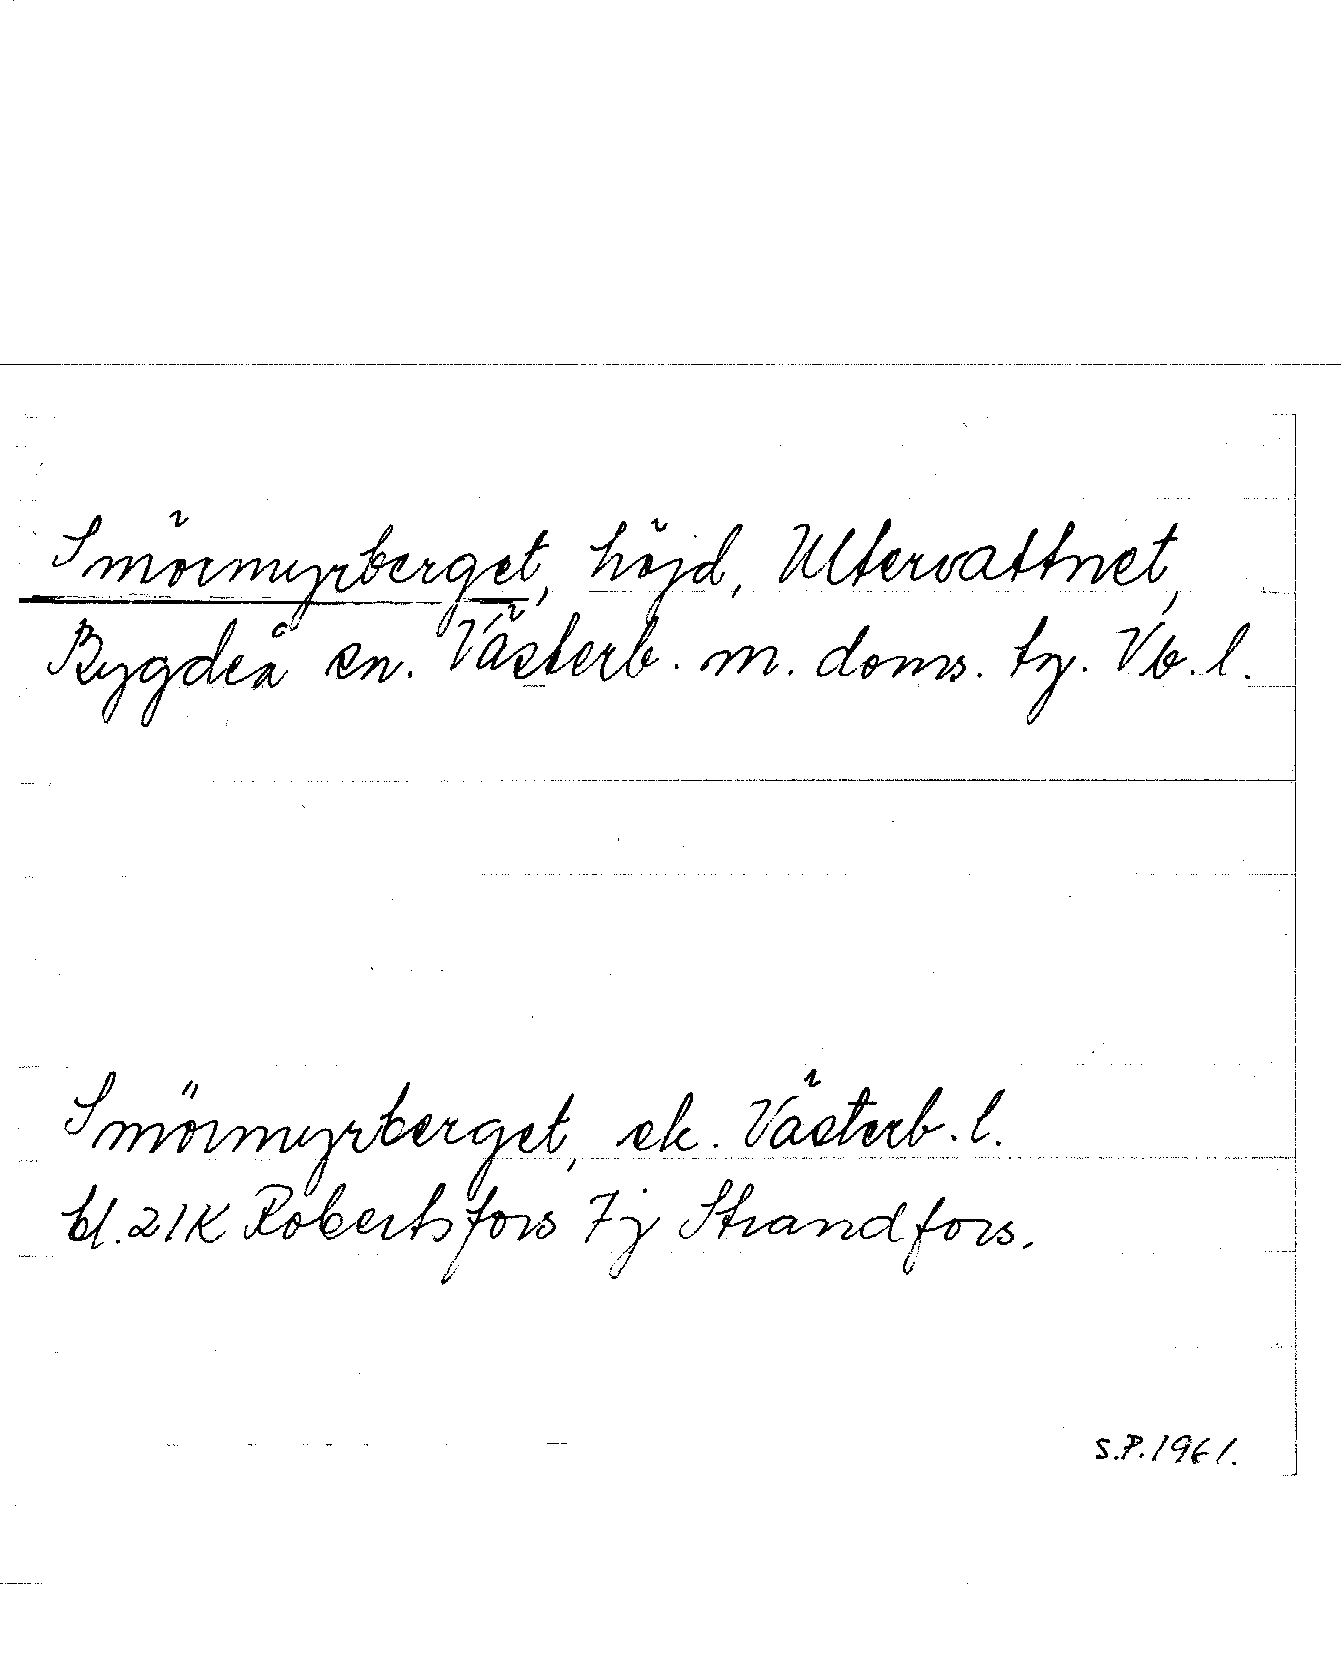 Smörmyrberget, höjd, Ultervattnet,
Bygdeå sn. Västerb. m. doms. tg. Vb. l.
Smörmyrberget, ek. Västerb. l.
bl. 21K Robertsfors 7j Strandfors.
S.P. 1961.